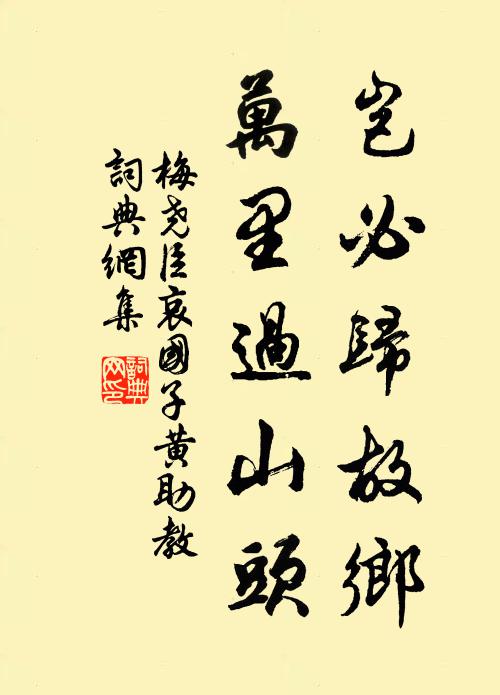 豈必歸故鄉
萬里過山頭
梅堯臣哀國子黄助教
詞典網集
詞典網印